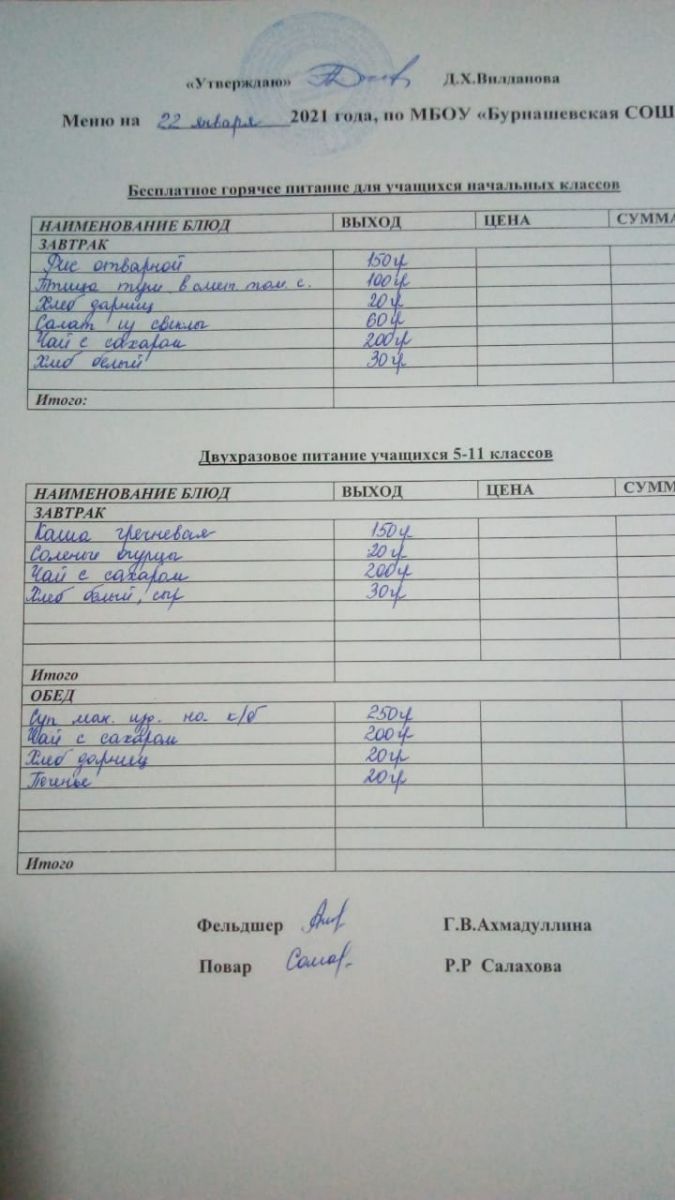 «Утверждаю» Д.Х.Вилданова
Меню на 22 января 2021 года, по МБОУ «Бурнашевская СОШ
Бесплатное горячее питание для учащихся начальных классов
НАИМЕНОВАНИЕ БЛЮД ВЫХОД ЦЕНА СУММА
ЗАВТРАК
Рис отварной 150гр
Птица туш. в смет. том. с. 100гр
Хлеб дарниц 20гр
Салат из свеклы 60гр
Чай с сахаром 200гр
Хлеб белый 30гр
Итого:
Двухразовое питание учащихся 5-11 классов
НАИМЕНОВАНИЕ БЛЮД ВЫХОД ЦЕНА СУММ
ЗАВТРАК
Каша гречневая 150гр
Соленые огурцы 20гр
Чай с сахаром 200гр
Хлеб белый, сыр 30гр
Итого
ОБЕД
Суп мак. изд. на. к/б 250гр
Чай с сахаром 200гр
Хлеб дарниц 20гр
Печенье 20гр
Итого
Фельдшер Г.В.Ахмадуллина
Повар Р.Р Салахова